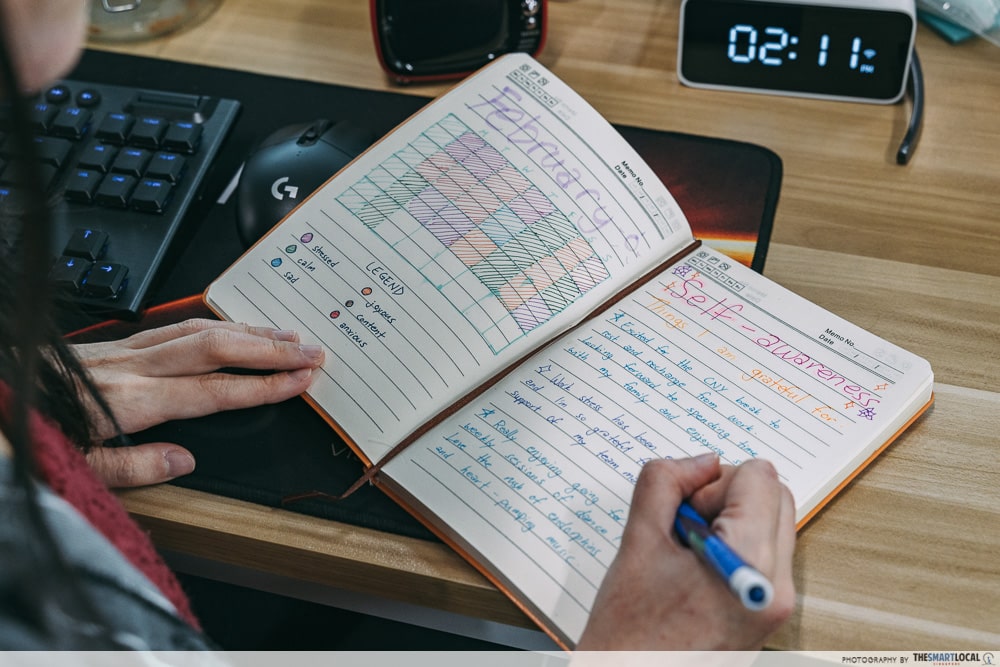 02:11
PM
G
February :
Memo No.
Date / /
LEGEND
stressed
calm
sad
joyous
content
anxious
Memo No.
Date / /
Self-awareness
Things I am grateful for
Excited for the CNY break to
rest and recharge from work
looking forward to spending time
with my family and enjoying
Work stress has been
and I'm so grateful
support of my team
Really enjoying going for
weekly sessions of dance
Love the rush of endorphins
and heart-pumping music.
PHOTOGRAPHY BY THESMARTLOCAL